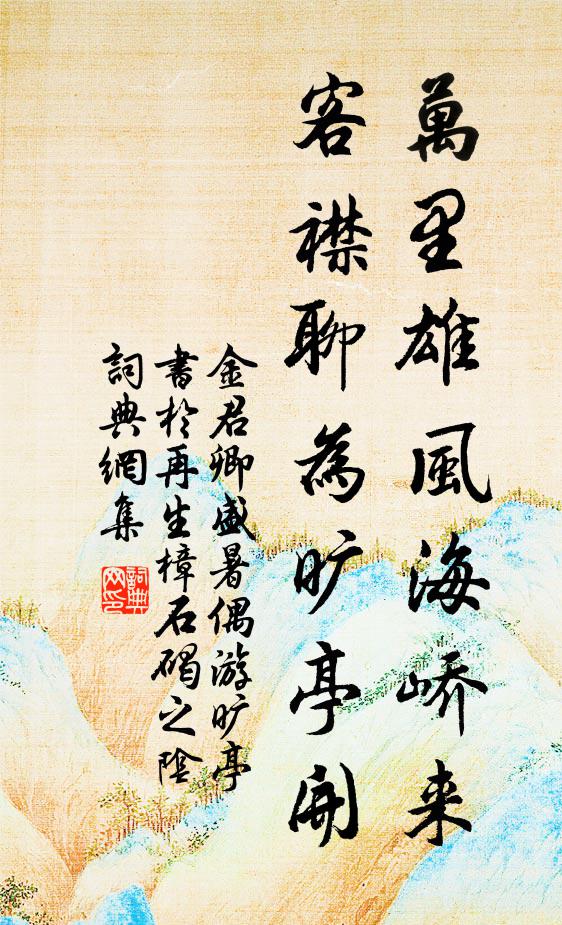 萬里雄風海嶠来
客襟聊為旷亭開
金君卿盛暑偶游旷亭
書於再生樟石碣之陰
詞典網集
詞典
网印